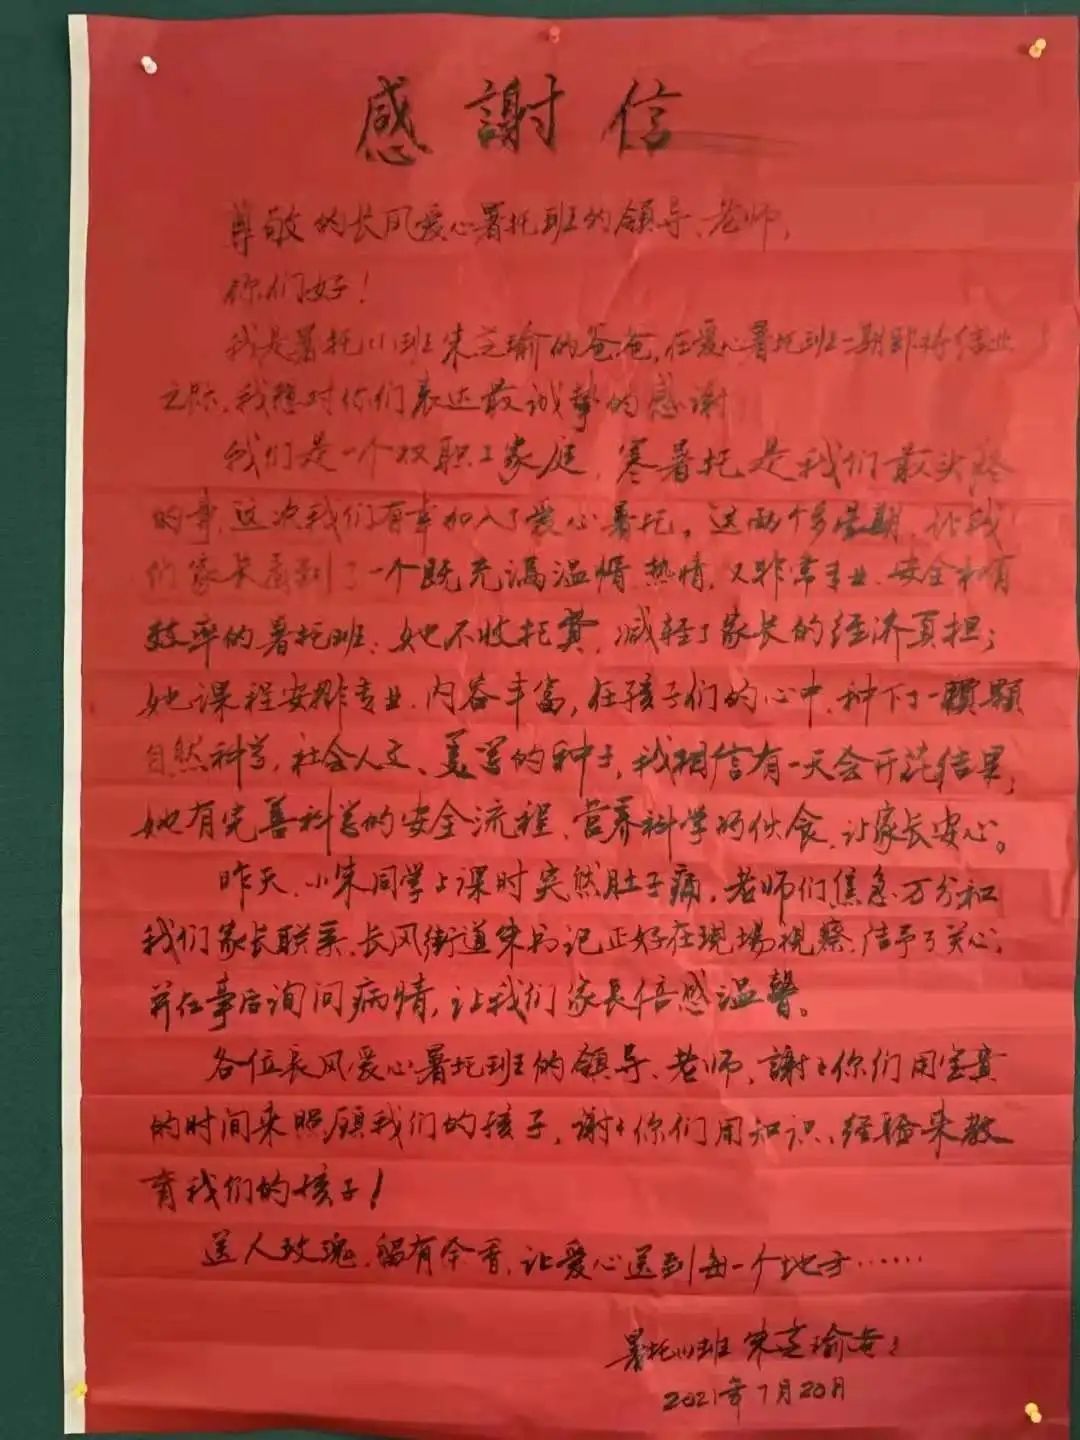 感謝信
尊敬的长风爱心暑托班的领导、老师,
你们好!
我是暑托(1)班朱芝瑜的爸爸,在爱心暑托班一期即将结业
之际,我想对你们表达最诚挚的感谢!
我们是一个双职工家庭,寒暑托是我们最头疼
的事,这次我们有幸加入了爱心暑托。这两个多星期,让我
们家长看到了一个既充满温情、热情,又非常专业、安全和有
效率的暑托班:她不收托费,减轻了家长的经济负担;
她课程安排专业、内容丰富,在孩子们的心中,种下了一颗颗
自然科学,社会人文、美学的种子,我相信有一天会开花结果;
她有完善科学的安全流程、营养科学的伙食,让家长安心。
昨天,小朱同学上课时突然肚子痛,老师们焦急万分和
我们家长联系、长风街道朱书记正好在現場視察,给予了关心,
并在事后询问病情,让我们家长倍感温馨。
各位长风爱心暑托班的领导、老师,謝谢你们用宝贵
的时间来照顾我们的孩子,谢谢你们用知识、经验来教
育我们的孩子!
送人玫瑰,留有余香,让爱心送到每一个地方……
暑托(1)班 朱芝瑜爸爸
2021年7月20日